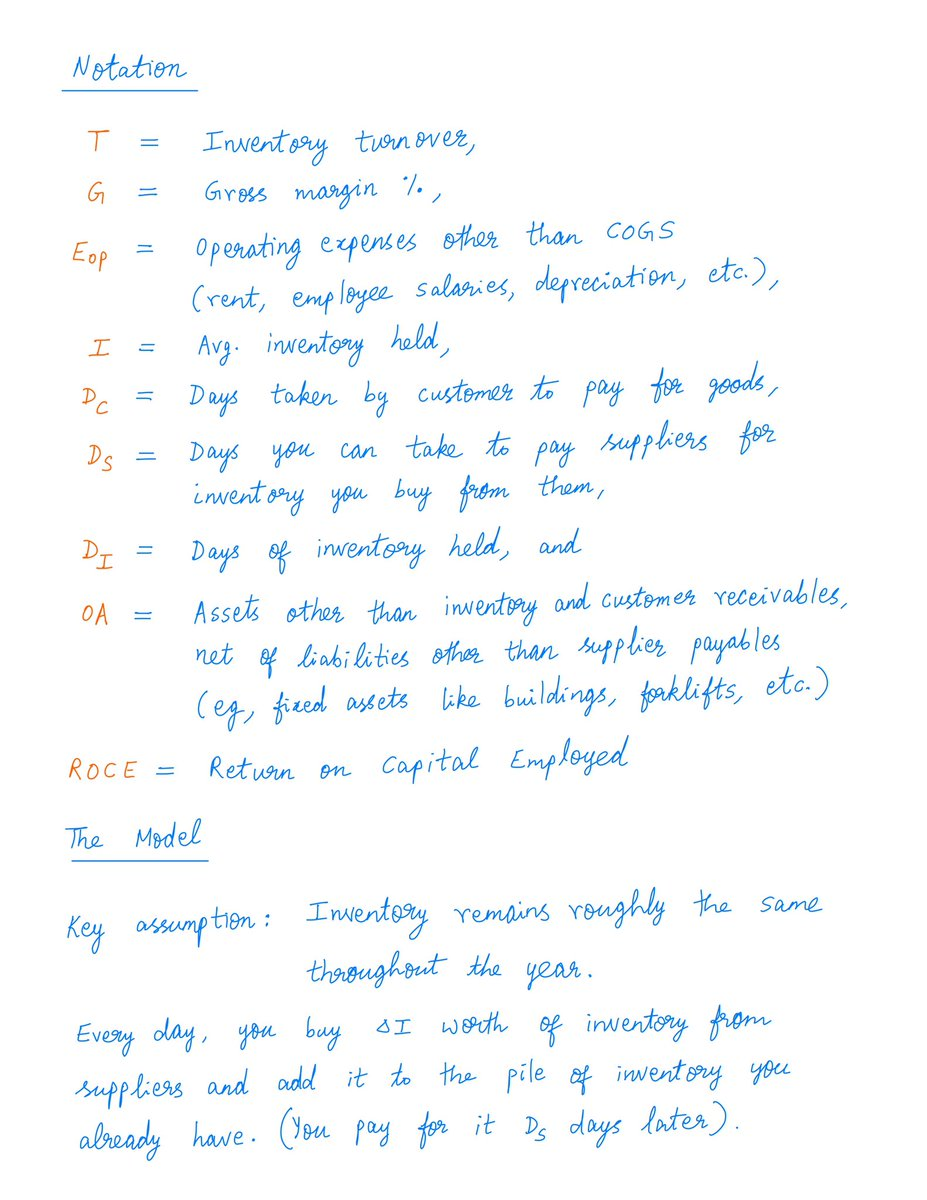 Notation
T = Inventory turnover,
G = Gross margin %,
E_OP = Operating expenses other than COGS
(rent, employee salaries, depreciation, etc.),
I = Avg. inventory held,
D_C = Days taken by customer to pay for goods,
D_S = Days you can take to pay suppliers for
inventory you buy from them,
D_I = Days of inventory held, and
OA = Assets other than inventory and customer receivables,
net of liabilities other than supplier payables
(eg, fixed assets like buildings, forklifts, etc.)
ROCE = Return on Capital Employed
The Model
Key assumption: Inventory remains roughly the same
throughout the year.
Every day, you buy ΔI worth of inventory from
suppliers and add it to the pile of inventory you
already have. (You pay for it D_S days later).